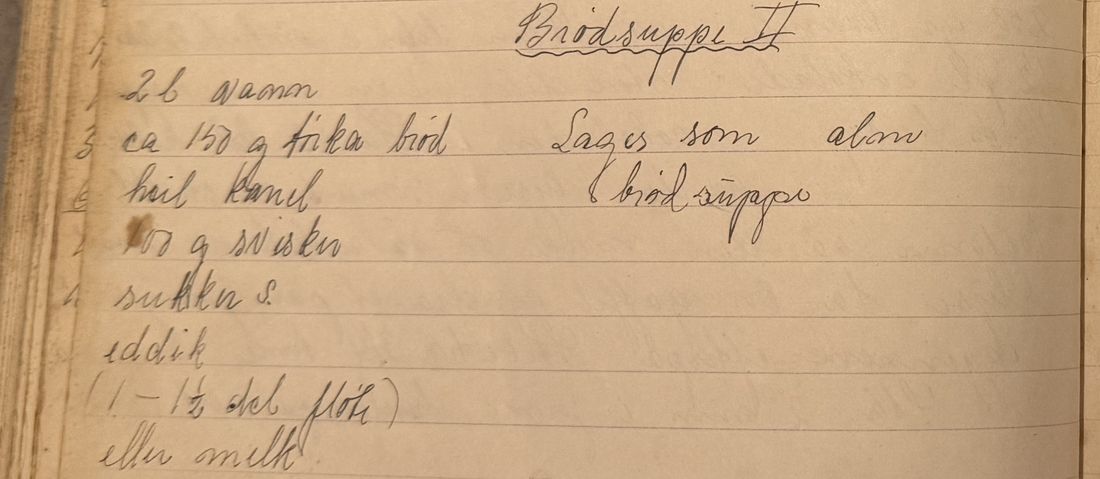 Brødsuppe II
2 l vann
ca 150 g tørka brød
heil kanel
100 g svisker
sukker s.
eddik
(1 - 1½ del fløte)
eller melk
Lages som alm
brødsuppe